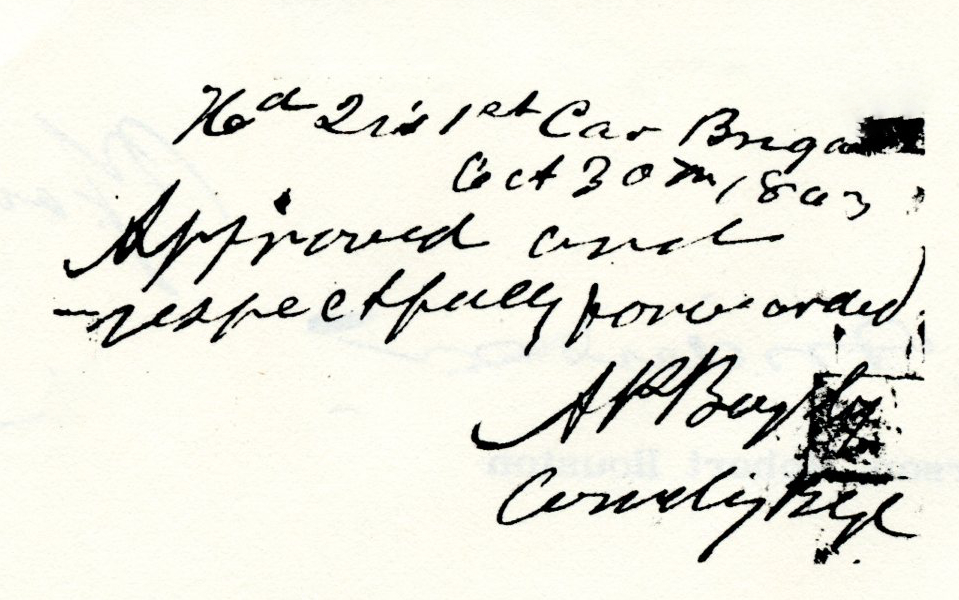 Hd 2is 1st Cav Briga
Oct 30th, 1863
Approved and
respectfully forwarded
A P Bag
Comdg Regt